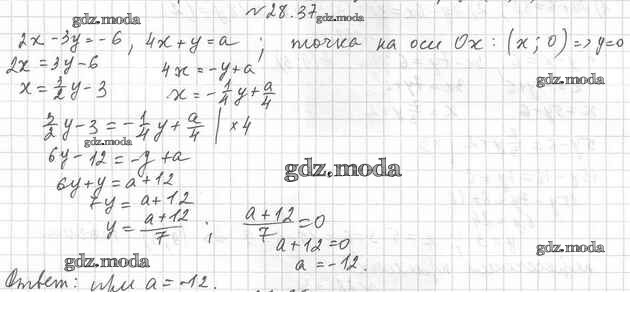 №28.37
gdz.moda gdz.moda
2x - 3y = -6, 4x + y = a ; точка на оси Ox: (x; 0) => y=0
2x = 3y - 6 4x = -y + a
gdz.moda
x = 3/2 y - 3 x = -1/4 y + a/4
3/2 y - 3 = -1/4 y + a/4 | × 4
gdz.moda
6y - 12 = -y + a
gdz.moda
6y + y = a + 12
7y = a + 12
y = (a + 12)/7 ; (a + 12)/7 = 0
a + 12 = 0
gdz.moda gdz.moda
a = -12.
Ответ: при a = -12.